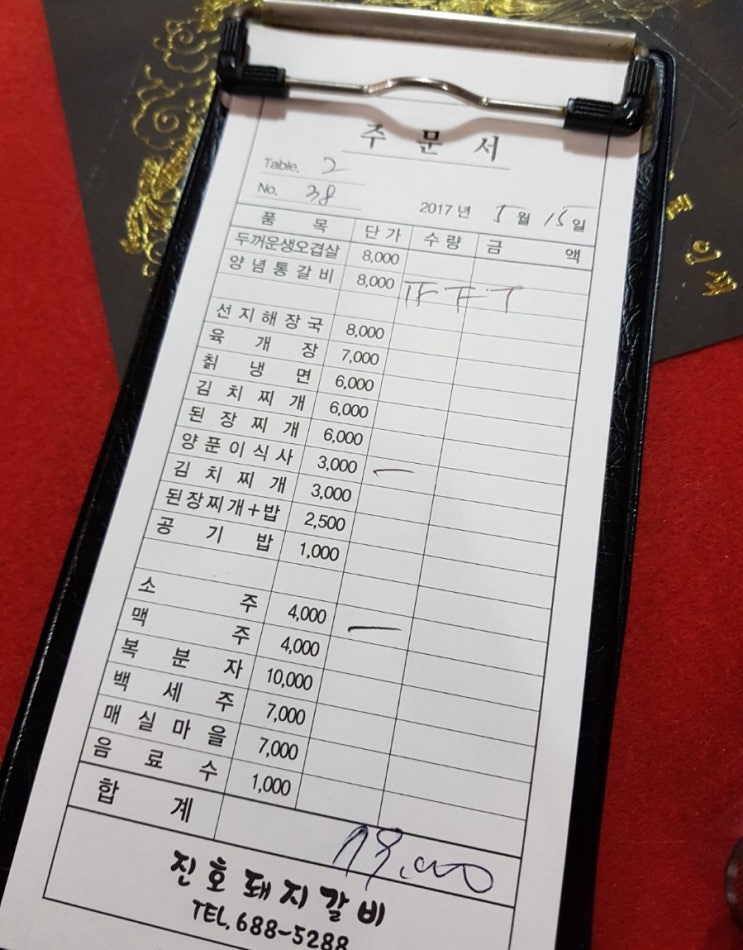 주 문 서
Table. 2
No. 38
2017 년 5 월 15 일
품 목 단 가 수 량 금 액
두꺼운생오겹살 8,000
양 념 통 갈 비 8,000
선 지 해 장 국 8,000
육 개 장 7,000
칡 냉 면 6,000
김 치 찌 개 6,000
된 장 찌 개 6,000
양 푼 이 식 사 3,000 一
김 치 찌 개 3,000
된장찌개+밥 2,500
공 기 밥 1,000
소 주 4,000 一
맥 주 4,000
복 분 자 10,000
백 세 주 7,000
매 실 마 을 7,000
음 료 수 1,000
합 계 79,000
진호돼지갈비
TEL. 688-5288